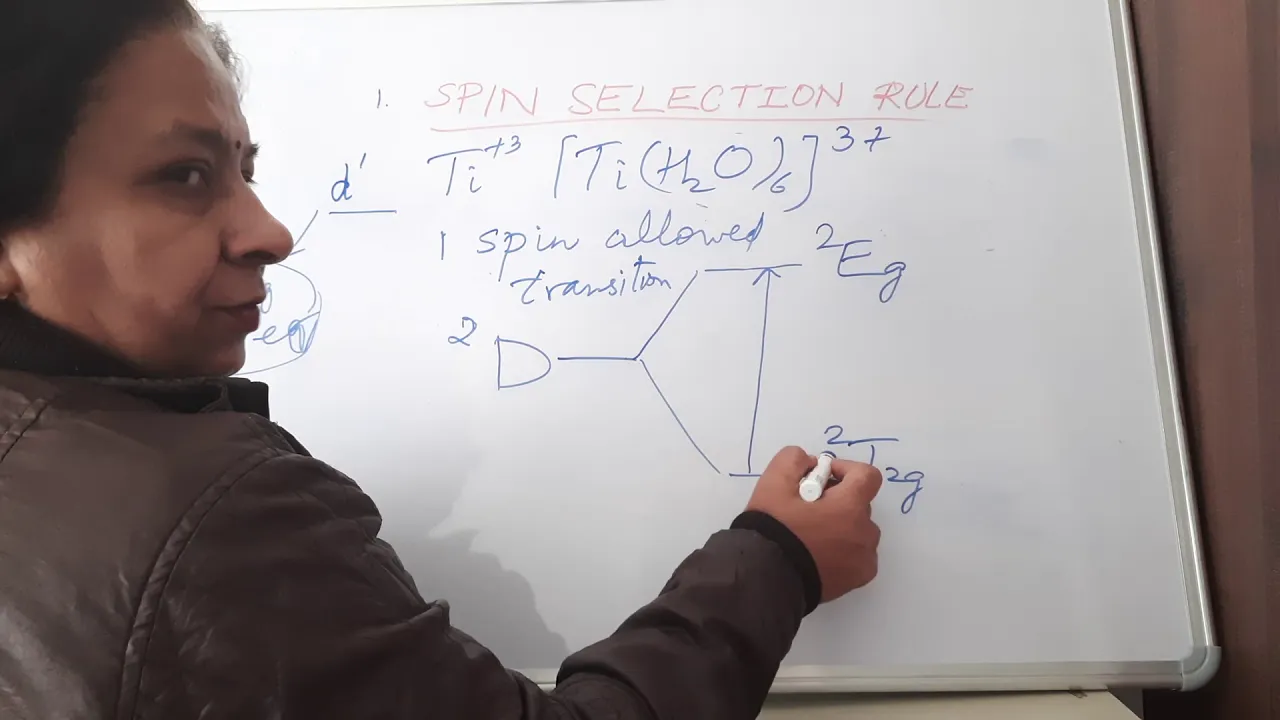 1. SPIN SELECTION RULE
d¹ Ti⁺³ [Ti(H₂O)₆]³⁺
1 spin allowed
transition
²Eg
²D
²T₂g